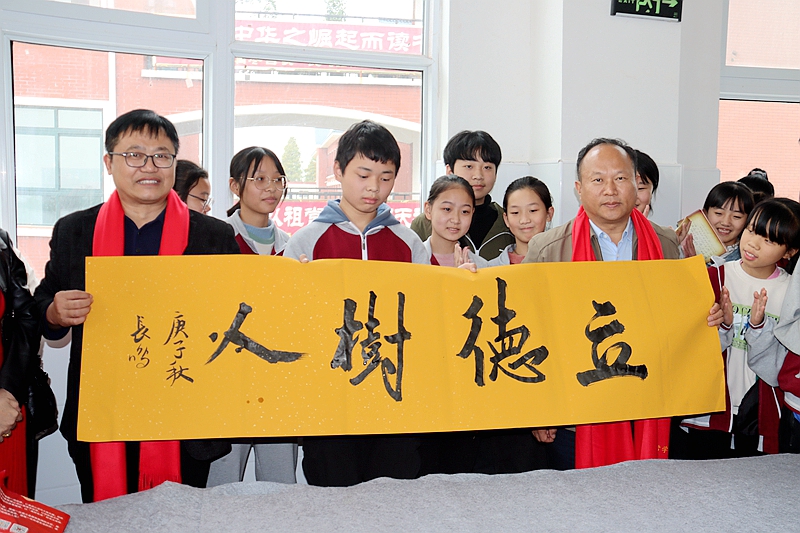 中华之崛起而读
EXIT
立德樹人
庚子秋
長鸣